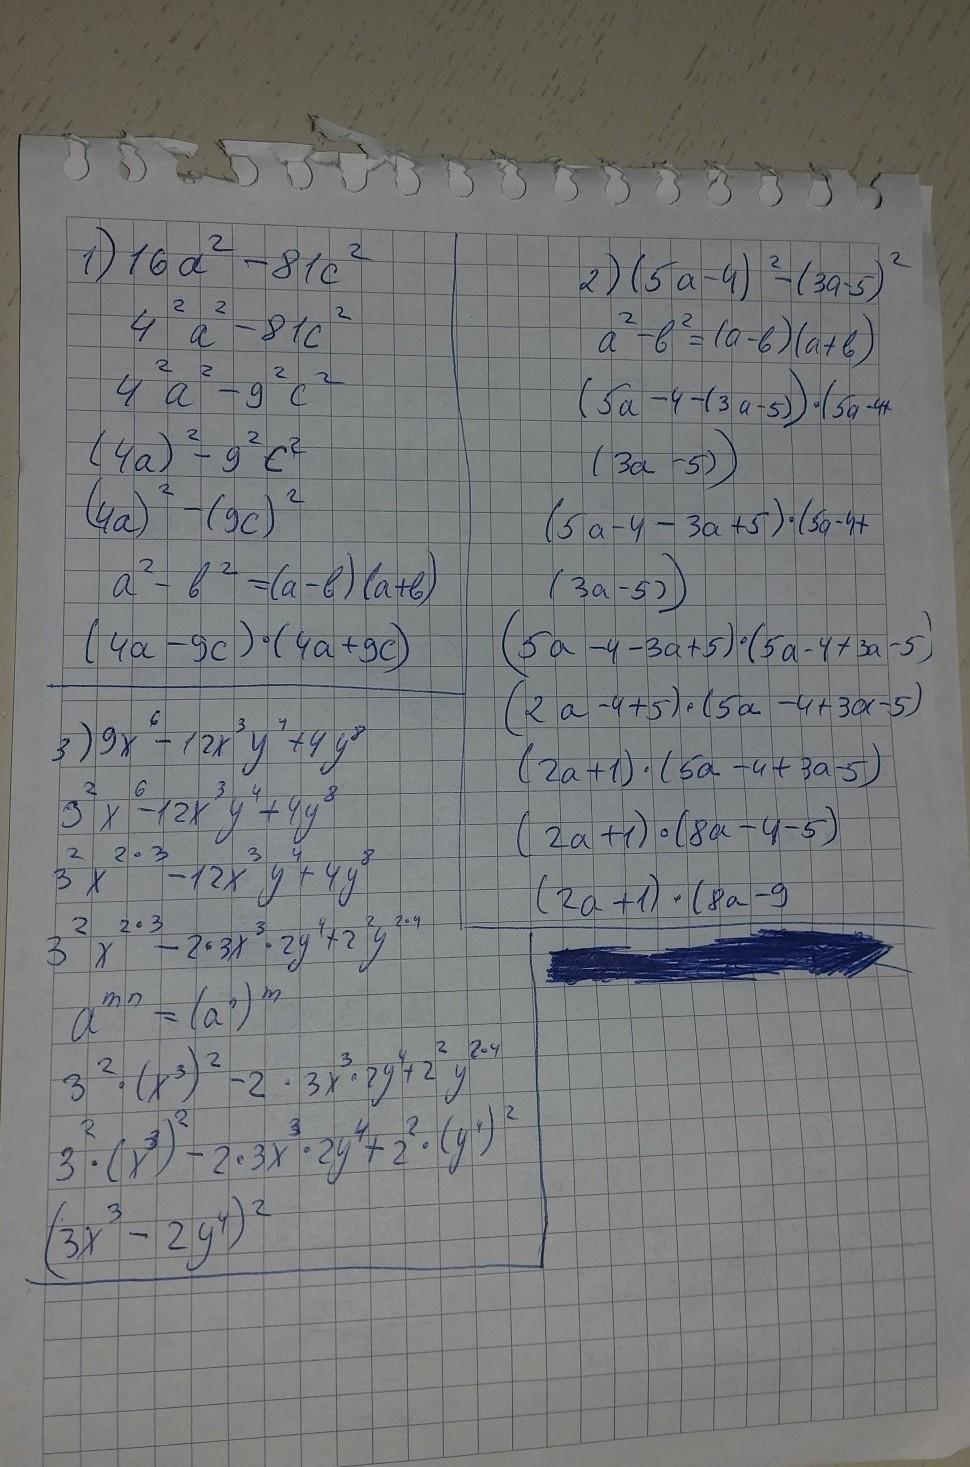 1) 16a² - 81c²
4²a² - 81c²
4²a² - 9²c²
(4a)² - 9²c²
(4a)² - (9c)²
a² - b² = (a-b)(a+b)
(4a - 9c)·(4a+9c)
2) (5a-4)² - (3a-5)²
a² - b² = (a-b)(a+b)
(5a - 4 - (3a-5))·(5a-4+
(3a - 5))
(5a-4 - 3a+5)·(5a-4+
(3a-5))
(5a - 4 - 3a+5)·(5a-4+3a-5)
(2a - 4+5)·(5a - 4+3a-5)
(2a+1)·(5a - 4+3a-5)
(2a+1)·(8a-4-5)
(2a+1)·(8a-9
3) 9x⁶ - 12x³y⁴ + 4y⁸
3²x⁶ - 12x³y⁴ + 4y⁸
3²x²·³ - 12x³y⁴ + 4y⁸
3²x²·³ - 2·3x³·2y⁴ + 2²y²·⁴
aᵐⁿ = (aⁿ)ᵐ
3²·(x³)² - 2·3x³·2y⁴ + 2²y²·⁴
3²·(x³)² - 2·3x³·2y⁴ + 2²·(y⁴)²
(3x³ - 2y⁴)²